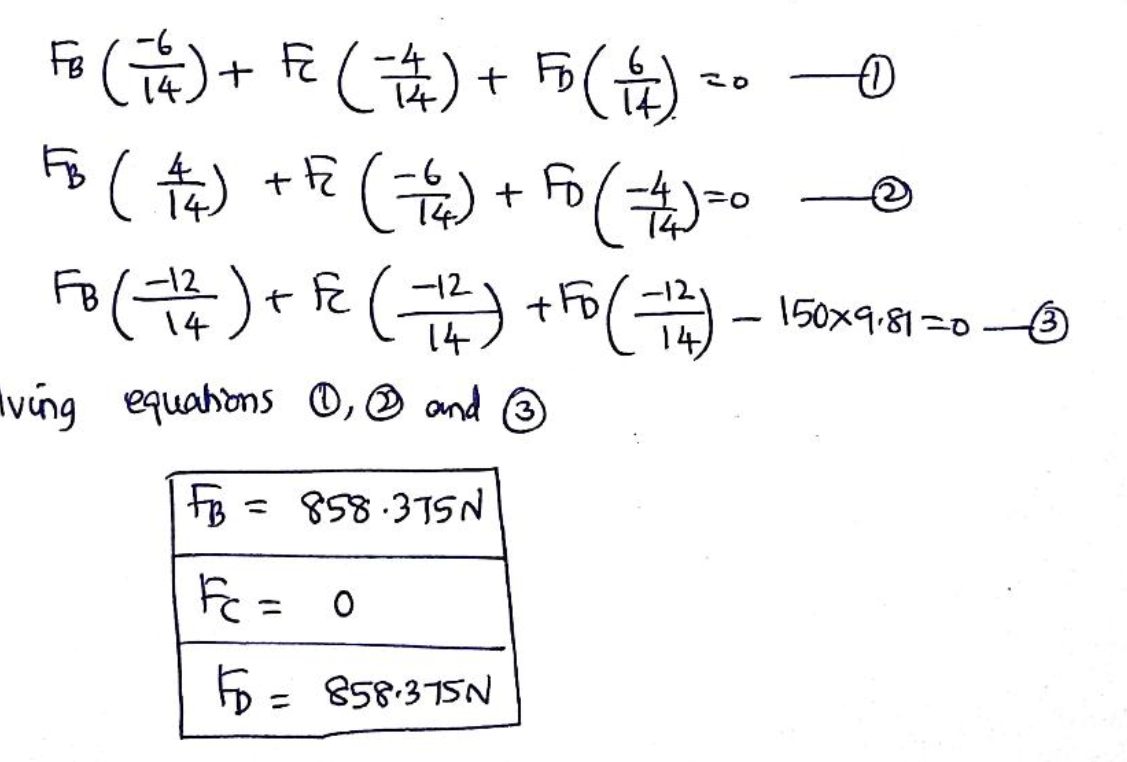 FB (-6/14) + FC (-4/14) + FD (6/14) = 0 — ①
FB (4/14) + FC (-6/14) + FD (-4/14) = 0 — ②
FB (-12/14) + FC (-12/14) + FD (-12/14) - 150×9.81 = 0 — ③
lving equations ①, ② and ③
FB = 858.375N
FC = 0
FD = 858.375N